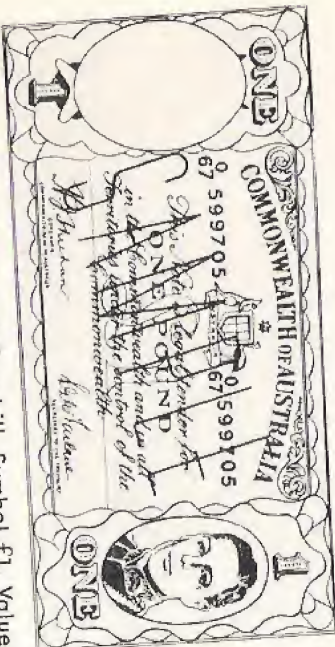 ONE
1
COMMONWEALTH OF AUSTRALIA
0
67 599705
0
67 599705
This Note is Legal Tender for
ONE POUND
in the Commonwealth and in all
Territories under the control of the
Commonwealth
GOVERNOR
1
ONE
Symbol £1 Value